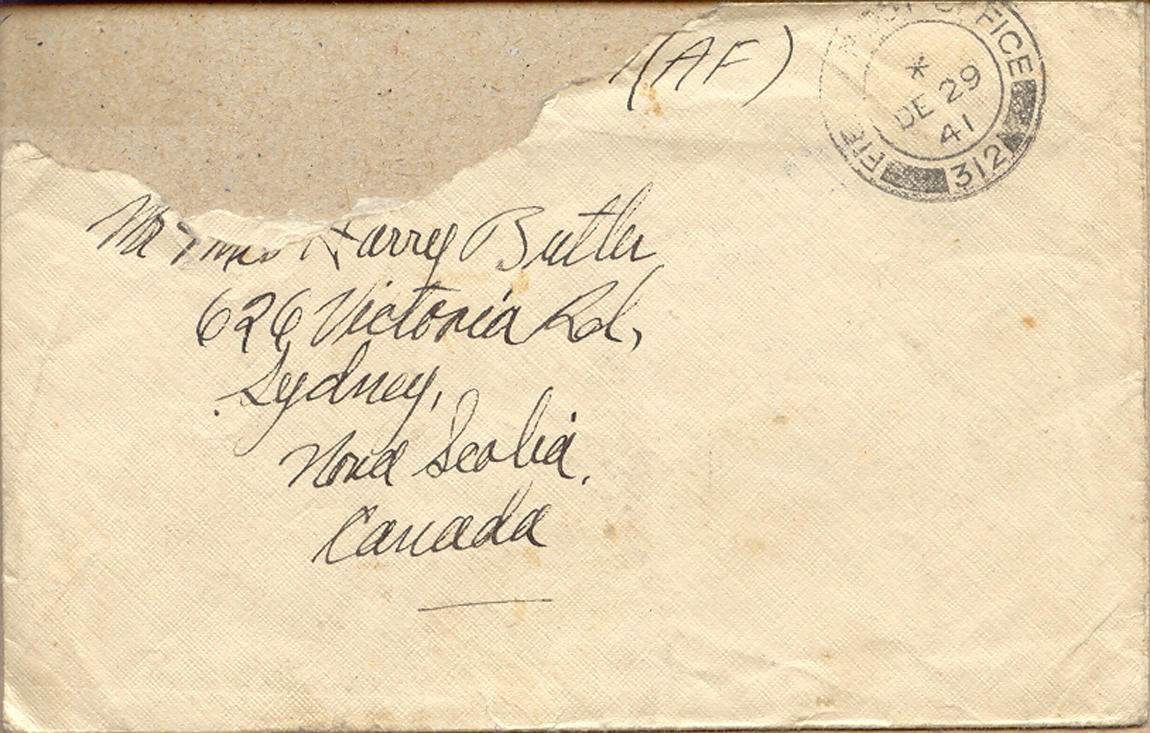 (AF)
FIELD POST OFFICE
*
DE 29
41
312
Mr & Mrs Harry Butler
626 Victoria Rd,
Sydney,
Nova Scotia,
Canada